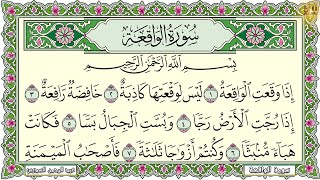 سُورَةُ الوَاقِعَةِ
بِسْمِ اللَّهِ الرَّحْمَٰنِ الرَّحِيمِ
إِذَا وَقَعَتِ الْوَاقِعَةُ ١ لَيْسَ لِوَقْعَتِهَا كَاذِبَةٌ ٢ خَافِضَةٌ رَّافِعَةٌ ٣
إِذَا رُجَّتِ الْأَرْضُ رَجًّا ٤ وَبُسَّتِ الْجِبَالُ بَسًّا ٥ فَكَانَتْ
هَبَاءً مُّنبَثًّا ٦ وَكُنتُمْ أَزْوَاجًا ثَلَاثَةً ٧ فَأَصْحَابُ الْمَيْمَنَةِ
سورة الواقعة